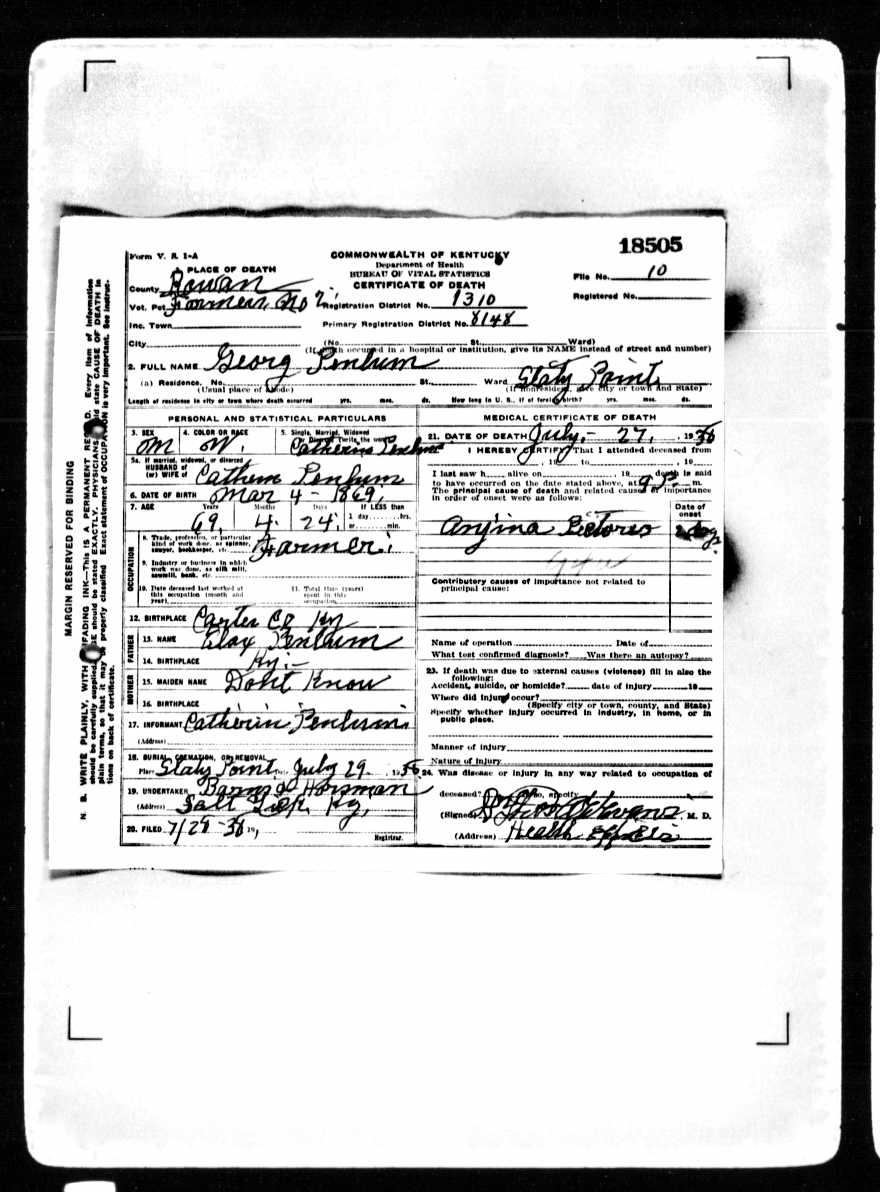 18505
Form V. S. 1-A
COMMONWEALTH OF KENTUCKY
Department of Health
BUREAU OF VITAL STATISTICS
CERTIFICATE OF DEATH
File No. 10
Registered No.
PLACE OF DEATH
County Rowan
Vot. Pct. Farmers No 2
Registration District No. 1310
Inc. Town
Primary Registration District No. 8148
City (No. St. Ward)
(If death occurred in a hospital or institution, give its NAME instead of street and number)
2. FULL NAME Georg Penlum
(a) Residence, No. St. Ward Slaty Point
(Usual place of abode) (If nonresident, give city or town and State)
Length of residence in city or town where death occurred yrs. mos. ds. How long in U. S., if of foreign birth? yrs. mos. ds.
PERSONAL AND STATISTICAL PARTICULARS
3. SEX M
4. COLOR OR RACE W.
5. Single, Married, Widowed
or Divorced (write the word)
Catherine Penlum
5a. If married, widowed, or divorced
HUSBAND of
(or) WIFE of Cathern Penlum
6. DATE OF BIRTH Mar 4 - 1869
7. AGE Years Months Days If LESS than
69 4 24 1 day hrs.
or min.
OCCUPATION
8. Trade, profession, or particular
kind of work done, as spinner,
sawyer, bookkeeper, etc. Farmer
9. Industry or business in which
work was done, as silk mill,
sawmill, bank, etc.
10. Date deceased last worked at
this occupation (month and
year)
11. Total time (years)
spent in this
occupation
12. BIRTHPLACE Carter Co Ky
FATHER
13. NAME Penlum
14. BIRTHPLACE Ky.-
MOTHER
15. MAIDEN NAME Dont Know
16. BIRTHPLACE
17. INFORMANT Catherin Penlum
(Address)
18. BURIAL, CREMATION, OR REMOVAL
Place Slaty Point Date July 29. 1938
19. UNDERTAKER Horsman
(Address) Salt Lick Ky,
20. FILED 7/29-38 19
Registrar.
MEDICAL CERTIFICATE OF DEATH
21. DATE OF DEATH July,- 27, 1938
I HEREBY CERTIFY That I attended deceased from
, 19 to , 19
I last saw h alive on 19 death is said
to have occurred on the date stated above, at 9 P. m.
The principal cause of death and related causes of importance
in order of onset were as follows:
Date of
onset
Anjina Pictores
Contributory causes of importance not related to
principal cause:
Name of operation Date of
What test confirmed diagnosis? Was there an autopsy?
23. If death was due to external causes (violence) fill in also the
following:
Accident, suicide, or homicide? date of injury 19
Where did injury occur?
(Specify city or town, county, and State)
Specify whether injury occurred in industry, in home, or in
public place.
Manner of injury
Nature of injury
24. Was disease or injury in any way related to occupation of
deceased? If so, specify
(Signed) Evans, M. D.
(Address) Health
MARGIN RESERVED FOR BINDING
N. B. WRITE PLAINLY, WITH UNFADING INK—THIS IS A PERMANENT RECORD. Every item of information
should be carefully supplied. AGE should be stated EXACTLY. PHYSICIANS should state CAUSE OF DEATH in
plain terms, so that it may be properly classified. Exact statement of OCCUPATION is very important. See instruc-
tions on back of certificate.